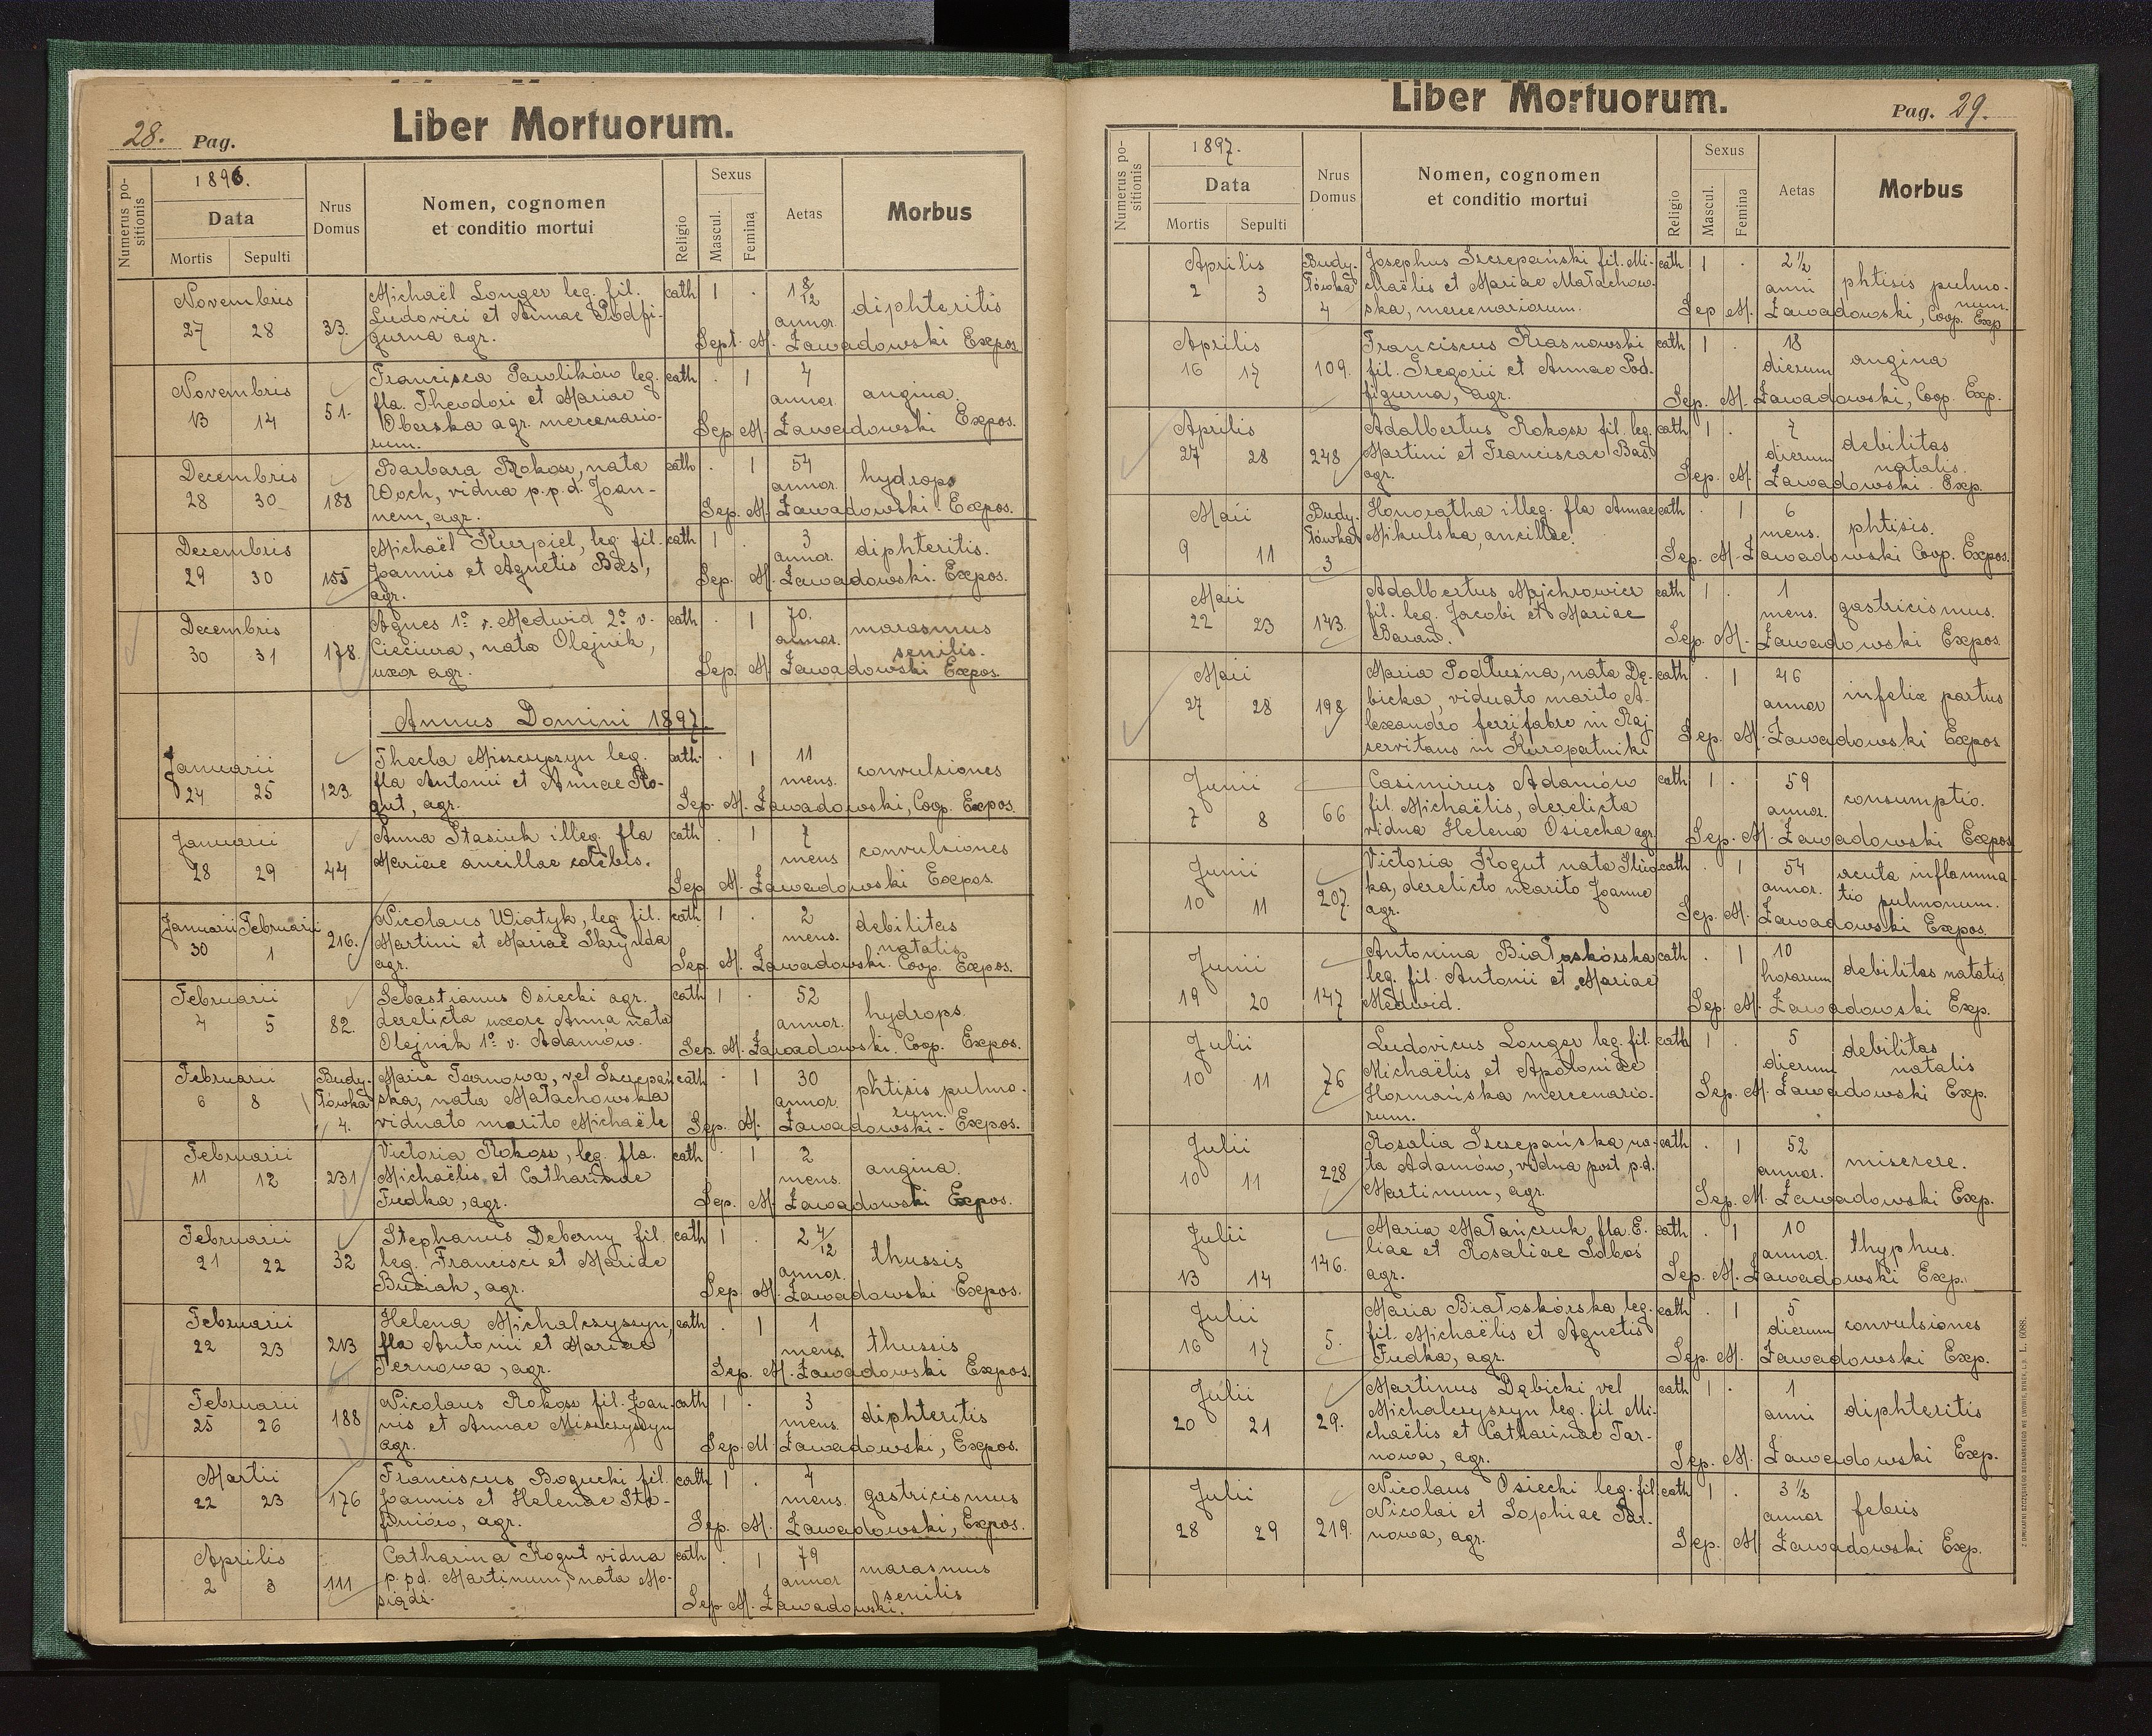 28. Pag.
Liber Mortuorum.
Numerus positionis
1896.
Data
Mortis Sepulti
Nrus Domus
Nomen, cognomen et conditio mortui
Religio
Sexus
Mascul. Femina
Aetas
Morbus
Novembris 27 28 33. Michaël Longer leg. fil. cath 1 . 1 8/12 annor. diphteritis
Ludovici et Annae Podfi-
gurna agr. Sept. M. Zawadowski Expos.
Novembris 13 14 51. Francisca Pawlików leg. cath . 1 4 annor. angina.
fla. Theodori et Mariae
Oberska agr. mercenario-
rum. Sep. M. Zawadowski Expos.
Decembris 28 30 188 Barbara Rokosz, nata cath . 1 54 annor. hydrops
Woch, vidua p.p.d. Joan-
nem, agr. Sep. M. Zawadowski. Expos.
Decembris 29 30 155 Michaël Kurpiel, leg. fil. cath 1 . 3 annor. diphteritis.
Joannis et Agnetis Bas,
agr. Sep. M. Zawadowski. Expos.
Decembris 30 31 178. Agnes 1º v. Medwid 2º v. cath . 1 70. annor. marasmus senilis.
Cieciura, nata Olejnik,
uxor agr. Sep. M Zawadowski Expos.
Annus Domini 1897.
Januarii 24 25 123. Thecla Miszczyszyn leg. cath. . 1 11 mens. convulsiones
fla Antonii et Annae Ko-
gut, agr. Sep. M. Zawadowski, Coop. Expos.
Januarii 28 29 44 Anna Stasiuk illeg. fla cath . 1 7 mens convulsiones
Mariae ancillae celebis.
Sep. M. Zawadowski Expos.
Januarii 30 Februarii 1 216. Nicolaus Wiatyk, leg. fil. cath 1 . 2 mens. debilitas natatis
Martini et Mariae Skrynda
agr. Sep. M. Zawadowski. Coop. Expos.
Februarii 4 5 82. Sebastianus Osiecki agr. cath 1 . 52 annor. hydrops.
derelicta uxore Anna nata
Olejnik 1º v. Adamów. Sep. M. Zawadowski. Coop. Expos.
Februarii 6 8 Budy-łówka 4. Maria Tarnowa, vel Szczepań- cath . 1 30 annor. phtisis pulmo-
ska, nata Małachowska
viduato marito Michaële Sep. M. Zawadowski. Expos.
Februarii 11 12 231 Victoria Rokosz, leg. fla. cath . 1 2 mens. angina.
Michaëlis et Catharinae
Fudka, agr. Sep. M. Zawadowski Expos.
Februarii 21 22 32 Stephanus Deberny fil. cath 1 . 2 4/12 annor. thussis
leg. Francisci et Mariae
Busiak, agr. Sep. M. Zawadowski Expos.
Februarii 22 23 213 Helena Michalczyszyn, cath . 1 1 mens. thussis
fla Antonii et Mariae
Ternowa, agr. Sep. M. Zawadowski Expos.
Februarii 25 26 188 Nicolaus Rokosz fil. Joan- cath 1 . 3 mens. diphteritis
nis et Annae Miszczyszyn
agr. Sep. M. Zawadowski, Expos.
Martii 22 23 176 Franciscus Bogucki fil. cath 1 . 4 mens. gastricismus
Joannis et Helenae
agr. Sep. M. Zawadowski, Expos.
Aprilis 2 3 111 Catharina Kogut vidua cath . 1 79 annor marasmus senilis
p. p.d. Martinum, nata Mo-
siądz. Sep. M. Zawadowski.
Liber Mortuorum.
Pag. 29.
Numerus positionis
1897.
Data
Mortis Sepulti
Nrus Domus
Nomen, cognomen et conditio mortui
Religio
Sexus
Mascul. Femina
Aetas
Morbus
Aprilis 2 3 Budy-łówka 4 Josephus Szczepański fil. Mi- cath 1 . 2 1/2 anni phtisis pulmo-num.
chaëlis et Mariae Małachow-
ska, mercenariorum. Sep M. Zawadowski, Coop. Exp
Aprilis 16 17 109. Franciscus Krasnowski cath 1 . 18 dierum angina
fil. Gregorii et Annae Pod-
figurna, agr. Sep. M. Zawadowski, Coop. Exp.
Aprilis 27 28 248 Adalbertus Rokosz fil. leg. cath 1 . 7 dierum debilitas natalis.
Martini et Franciscae Bas.
agr. Sep. M. Zawadowski. Exp.
Maii 9 11 Budy-łówka 3 Honoratha illeg. fla Annae cath . 1 6 mens. phtisis.
Mikulska, ancillae.
Sep. M. Zawadowski Coop. Expos.
Maii 22 23 143. Adalbertus Majchrowicz cath 1 . 1 mens. gastricismus.
fil. leg. Jacobi et Mariae
Baran. Sep. M. Zawadowski Expos.
Maii 27 28 198 Maria Podłużna, nata Dę- cath . 1 46 annor infelix partus
bicka, viduato marito A-
lexandro ferrifabro in Raj
servitans in Kuropatniki Sep. M. Zawadowski Expos
Junii 7 8 66 Casimirus Adamów cath 1 . 59 annor. consumptio.
fil. Michaëlis, derelicta
vidua Helena Osiecka agr. Sep. M. Zawadowski Expos
Junii 10 11 207. Victoria Kogut nata cath . 1 54 annor. acuta inflamma-
ka, derelicto marito Joanne tio pulmonum.
agr. Sep. M. Zawadowski Expos.
Junii 19 20 147 Antonina Białoskórska cath . 1 10 horarum debilitas natatis
leg. fil. Antonii et Mariae
Medwid. Sep. M. Zawadowski Exp.
Julii 10 11 76 Ludovicus Longer leg. fil. cath 1 . 5 dierum debilitas natalis
Michaëlis et Apoloniae
Hormańska mercenario-
rum. Sep. M. Zawadowski Exp.
Julii 10 11 228 Rosalia Szczepańska na- cath . 1 52 annor. miserere.
ta Adamów, vidua post p.d.
Martinum, agr. Sep. M. Zawadowski Exp.
Julii 13 14 146. Maria Matańczuk, fla. E- cath . 1 10 annor. thyphus.
liae et Rosaliae Sobos
agr. Sep. M. Zawadowski Exp.
Julii 16 17 5. Maria Białoskórska leg. cath . 1 5 dierum convulsiones
fil. Michaëlis et Agnetis
Fudka, agr. Sep. M. Zawadowski Exp.
Julii 20 21 29. Martinus Dębicki vel cath 1 . 1 anni diphteritis
Michalczyszyn leg. fil Mi-
chaëlis et Catharinae Tar-
nowa, agr. Sep. M. Zawadowski Exp.
Julii 28 29 219. Nicolaus Osiecki leg. fil cath 1 . 3 1/2 annor febris
Nicolai et Sophiae Tar-
nowa, agr. Sep. M Zawadowski Exp.